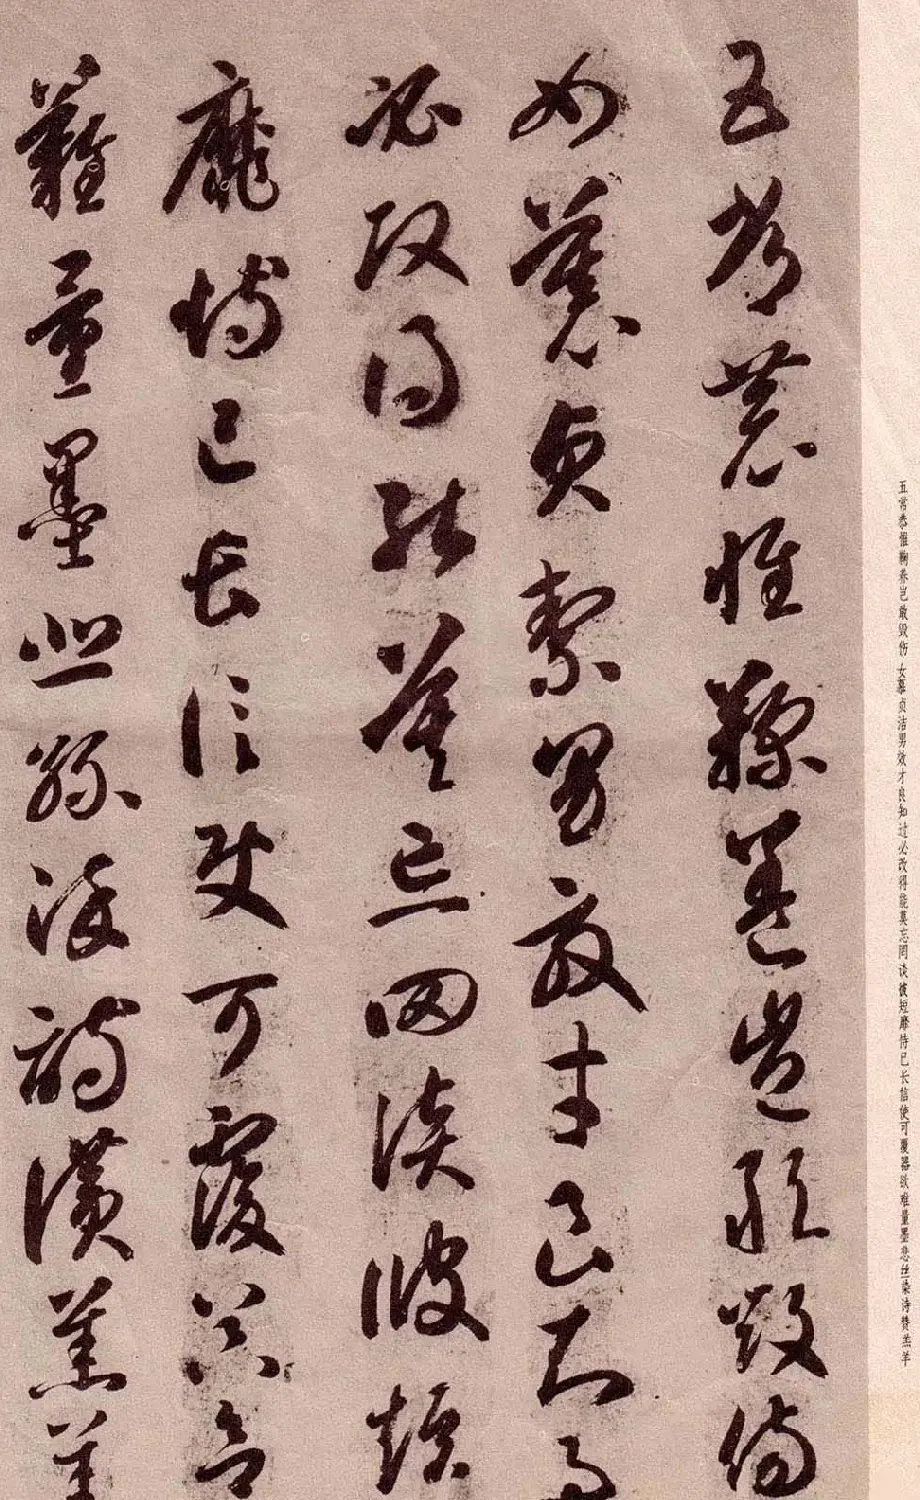 五常恭惟鞠养岂敢毁伤 女慕贞洁男效才良知过必改得能莫忘罔谈彼短靡恃已长信使可覆器欲难量墨悲丝染诗赞羔羊
五常恭惟鞠養豈敢毀傷
女慕貞絜男效才良知過
必改得能莫忘罔談彼短
靡恃己長信使可覆器欲
難量墨悲絲染詩讚羔羊